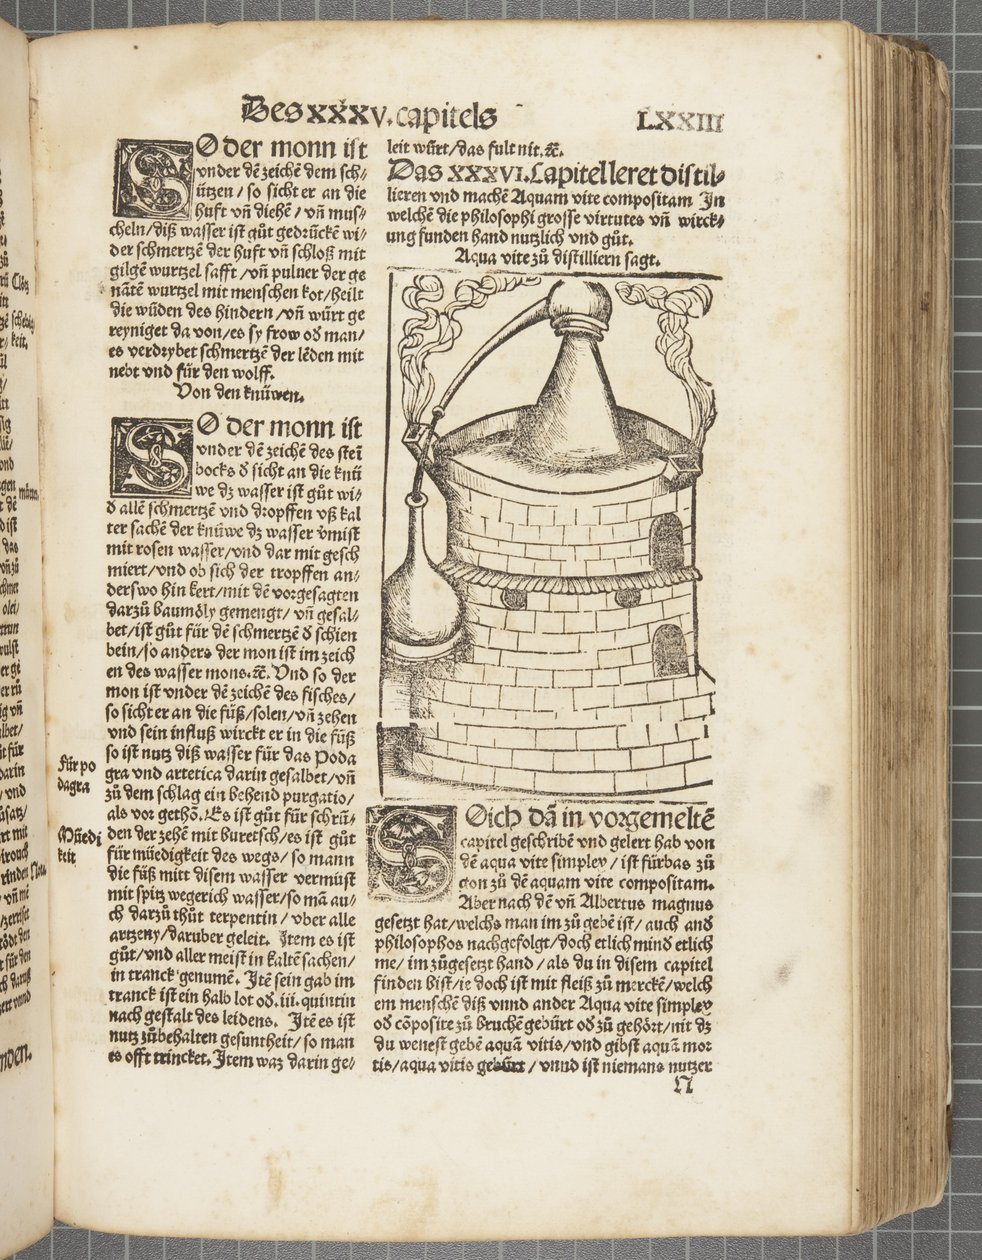 Des XXXV. capitels
LXXIII
SO der monn ist
vnder dē zeichē dem sch⸗
ützen / so sicht er an die
huft vñ diehē / vñ mus⸗
cheln/diß wasser ist gůt gedrückē wi⸗
der schmertzē der huft vñ schloß mit
gilgē wurtzel safft /vñ puluer der ge
nātē wurtzel mit menschen kot/heilt
die wūden des hindern/vñ würt ge
reyniget da von/es sy frow oð man/
es verdrybet schmertzē der lēden mit
nebt vnd für den wolff.
Von den knüwen.
SO der monn ist
vnder dē zeichē des stei
bocks ð sicht an die knü
we dz wasser ist gůt wi⸗
ð allē schmertzē vnd dropffen vß kal
ter sachē der knüwe dz wasser vmist
mit rosen wasser/vnd dar mit gesch
miert/vnd ob sich der tropffen an⸗
derswo hin kert/mit dē vorgesagten
darzů baumöly gemengt/ vñ gesal⸗
bet/ist gůt für dē schmertzē ð schien
bein/so anders der mon ist im zeich
en des wasser mons.ꝛc̄. Vnd so der
mon ist vnder dē zeichē des fisches/
so sicht er an die füß/solen/vñ zehen
vnd sein influß wirckt er in die füß
so ist nutz diß wasser für das Poda
gra vnd artetica darin gesalbet/vñ
zů dem schlag ein behend purgatio/
als vor gethō. Es ist gůt für schrū⸗
den der zehē mit buretsch/es ist gůt
für müedigkeit des wegs/ so mann
die füß mitt disem wasser vermüst
mit spitz wegerich wasser/so mā au⸗
ch darzů thůt terpentin / vber alle
artzeny/daruber geleit. Item es ist
gůt/vnd aller meist in kaltē sachen/
in tranck genumē. Itē sein gab im
tranck ist ein halb lot oð.iii.quintin
nach gestalt des leidens. Itē es ist
nutz zůbehalten gesuntheit/ so man
es offt trincket. Item waz darin ge⸗
Für po
dagra
Müedi
keit
leit würt/das fult nit.ꝛc̄.
Das XXXVI. Capitel leret distil⸗
lieren vnd machē Aquam vite compositam In
welchē die philosophi grosse virtutes vñ wirck⸗
ung funden hand nutzlich vnd gůt.
Aqua vite zů distilliern sagt.
SOich dā in vorgemeltē
capitel geschribē vnd gelert hab von
dē aqua vite simplex / ist fürbas zů
gon zů dē aquam vite compositam.
Aber nach dē vñ Albertus magnus
gesetzt hat/welchs man im zů gebē ist/ auch and
philosophos nachgefolgt/doch etlich mind etlich
me/ im zůgesetzt hand / als du in disem capitel
finden bist/ie doch ist mit fleiß zů merckē/welch
em menschē diß vnnd ander Aqua vite simplex
oð cōposite zů bruchē gebürt oð zů gehört/nit dz
du wenest gebē aquā vitis/vnd gibst aquā mor
tis/aqua vitis gebürt / vnnd ist niemans nutzer
N